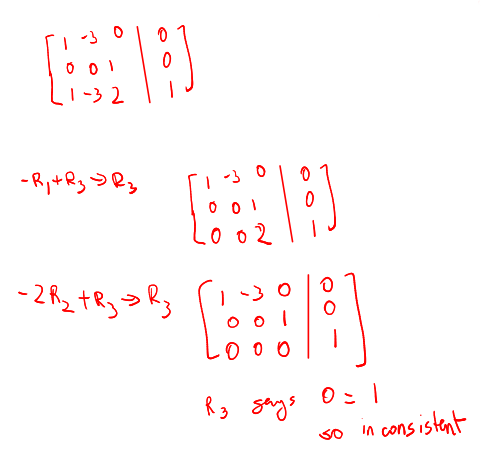 [ 1 -3 0 | 0 ]
[ 0 0 1 | 0 ]
[ 1 -3 2 | 1 ]
-R₁+R₃→R₃ [ 1 -3 0 | 0 ]
[ 0 0 1 | 0 ]
[ 0 0 2 | 1 ]
-2R₂+R₃→R₃ [ 1 -3 0 | 0 ]
[ 0 0 1 | 0 ]
[ 0 0 0 | 1 ]
R₃ says 0 = 1
so inconsistent